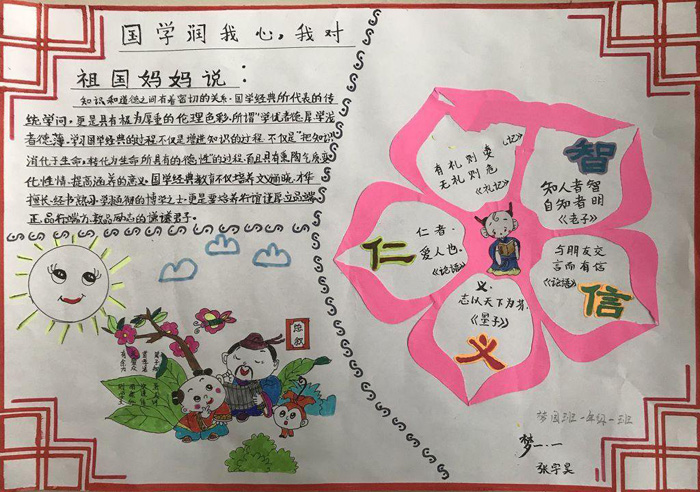 国学润我心，我对
祖国妈妈说：
知识和道德之间有着密切的关系。国学经典所代表的传
统学问，更是具有极为厚重的伦理色彩，所谓"学优者德厚，学浅
者德薄。学习国学经典的过程不仅是增进知识的过程，不仅是"把知识
消化于生命，转化为生命所具有的德性"的过程，而且具有熏陶气质变
化性情、提高涵养的意义。国学经典教育不仅培养文
擅长
正、品行端方
礼记》
有礼则
无礼则危
《礼记》
智
知人者智
自知者明
《老子》
仁
仁者·
爱人也
《论语》
与朋友交
言而有信
《论语》
信
义·
志以天下为芬
《墨子》
义
梦园班一年级一班
梦一.一
张宇昊